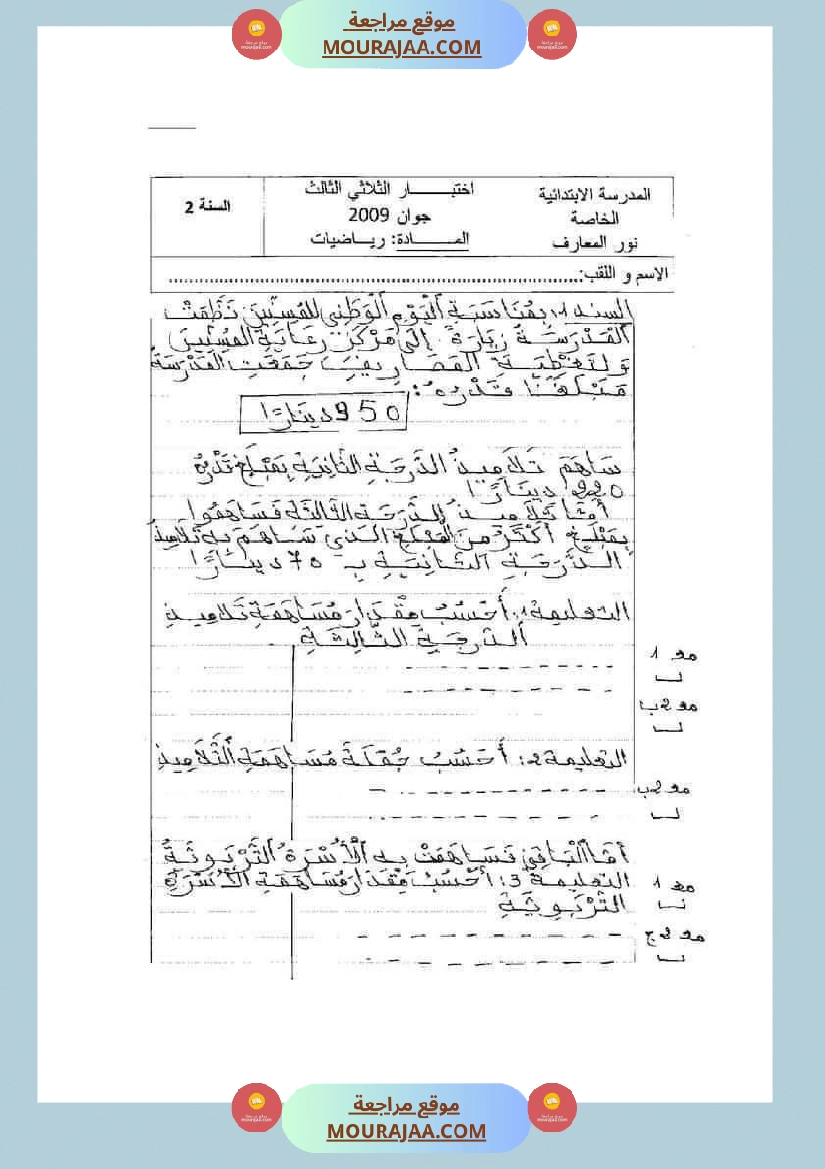 موقع مراجعة
MOURAJAA.COM
المدرسة الابتدائية
الخاصة
نور المعارف
اختبـــــــار الثلاثي الثالث
جوان 2009
المـــــــادة: ريـاضيات
السنة 2
الاسم و اللقب:
السند 1: بِمُنَاسَبَةِ الْيَوْمِ الْوَطَنِي لِلْمُسِنِّينَ نَظَّمَتْ
الْمَدْرَسَـةُ زِيَارَةً إِلَى مَرْكَزِ رِعَايَةِ الْمُسِنِّينَ
وَلِتَغْطِيَـةِ الْمَصَارِيفِ جَمَعَتِ الْمَدْرَسَةُ
مَبْلَغًا قَدْرُهُ:
950 دِينَارًا
سَاهَمَ تَلَامِيذُ الدَّرَجَةِ الثَّانِيَةِ بِمَبْلَغٍ قَدْرُهُ
220 دِينَارًا
أَمَّا تَلَامِيذُ الدَّرَجَةِ الثَّالِثَةِ فَسَاهَمُوا
بِمَبْلَغٍ أَكْثَرَ مِنَ الْمَبْلَغِ الَّذِي سَاهَمَ بِهِ تَلَامِيذُ
الدَّرَجَةِ الثَّانِيَةِ بِـ 70 دِينَارًا
التعليمة 1: أَحْسُبُ مِقْدَارَ مُسَاهَمَةِ تَلَامِيذِ
الدَّرَجَةِ الثَّالِثَةِ
مع 1
مع 2 ب
التعليمة 2: أَحْسُبُ جُمْلَةَ مُسَاهَمَةِ التَّلَامِيذِ
مع 2 ب
أَمَّا الْبَاقِي فَسَاهَمَتْ بِهِ الْأُسْرَةُ التَّرْبَوِيَّةُ
التعليمة 3: أَحْسُبُ مِقْدَارَ مُسَاهَمَةِ الْأُسْرَةِ
التَّرْبَوِيَّةِ
مع 1
مع 3 ج
موقع مراجعة
MOURAJAA.COM